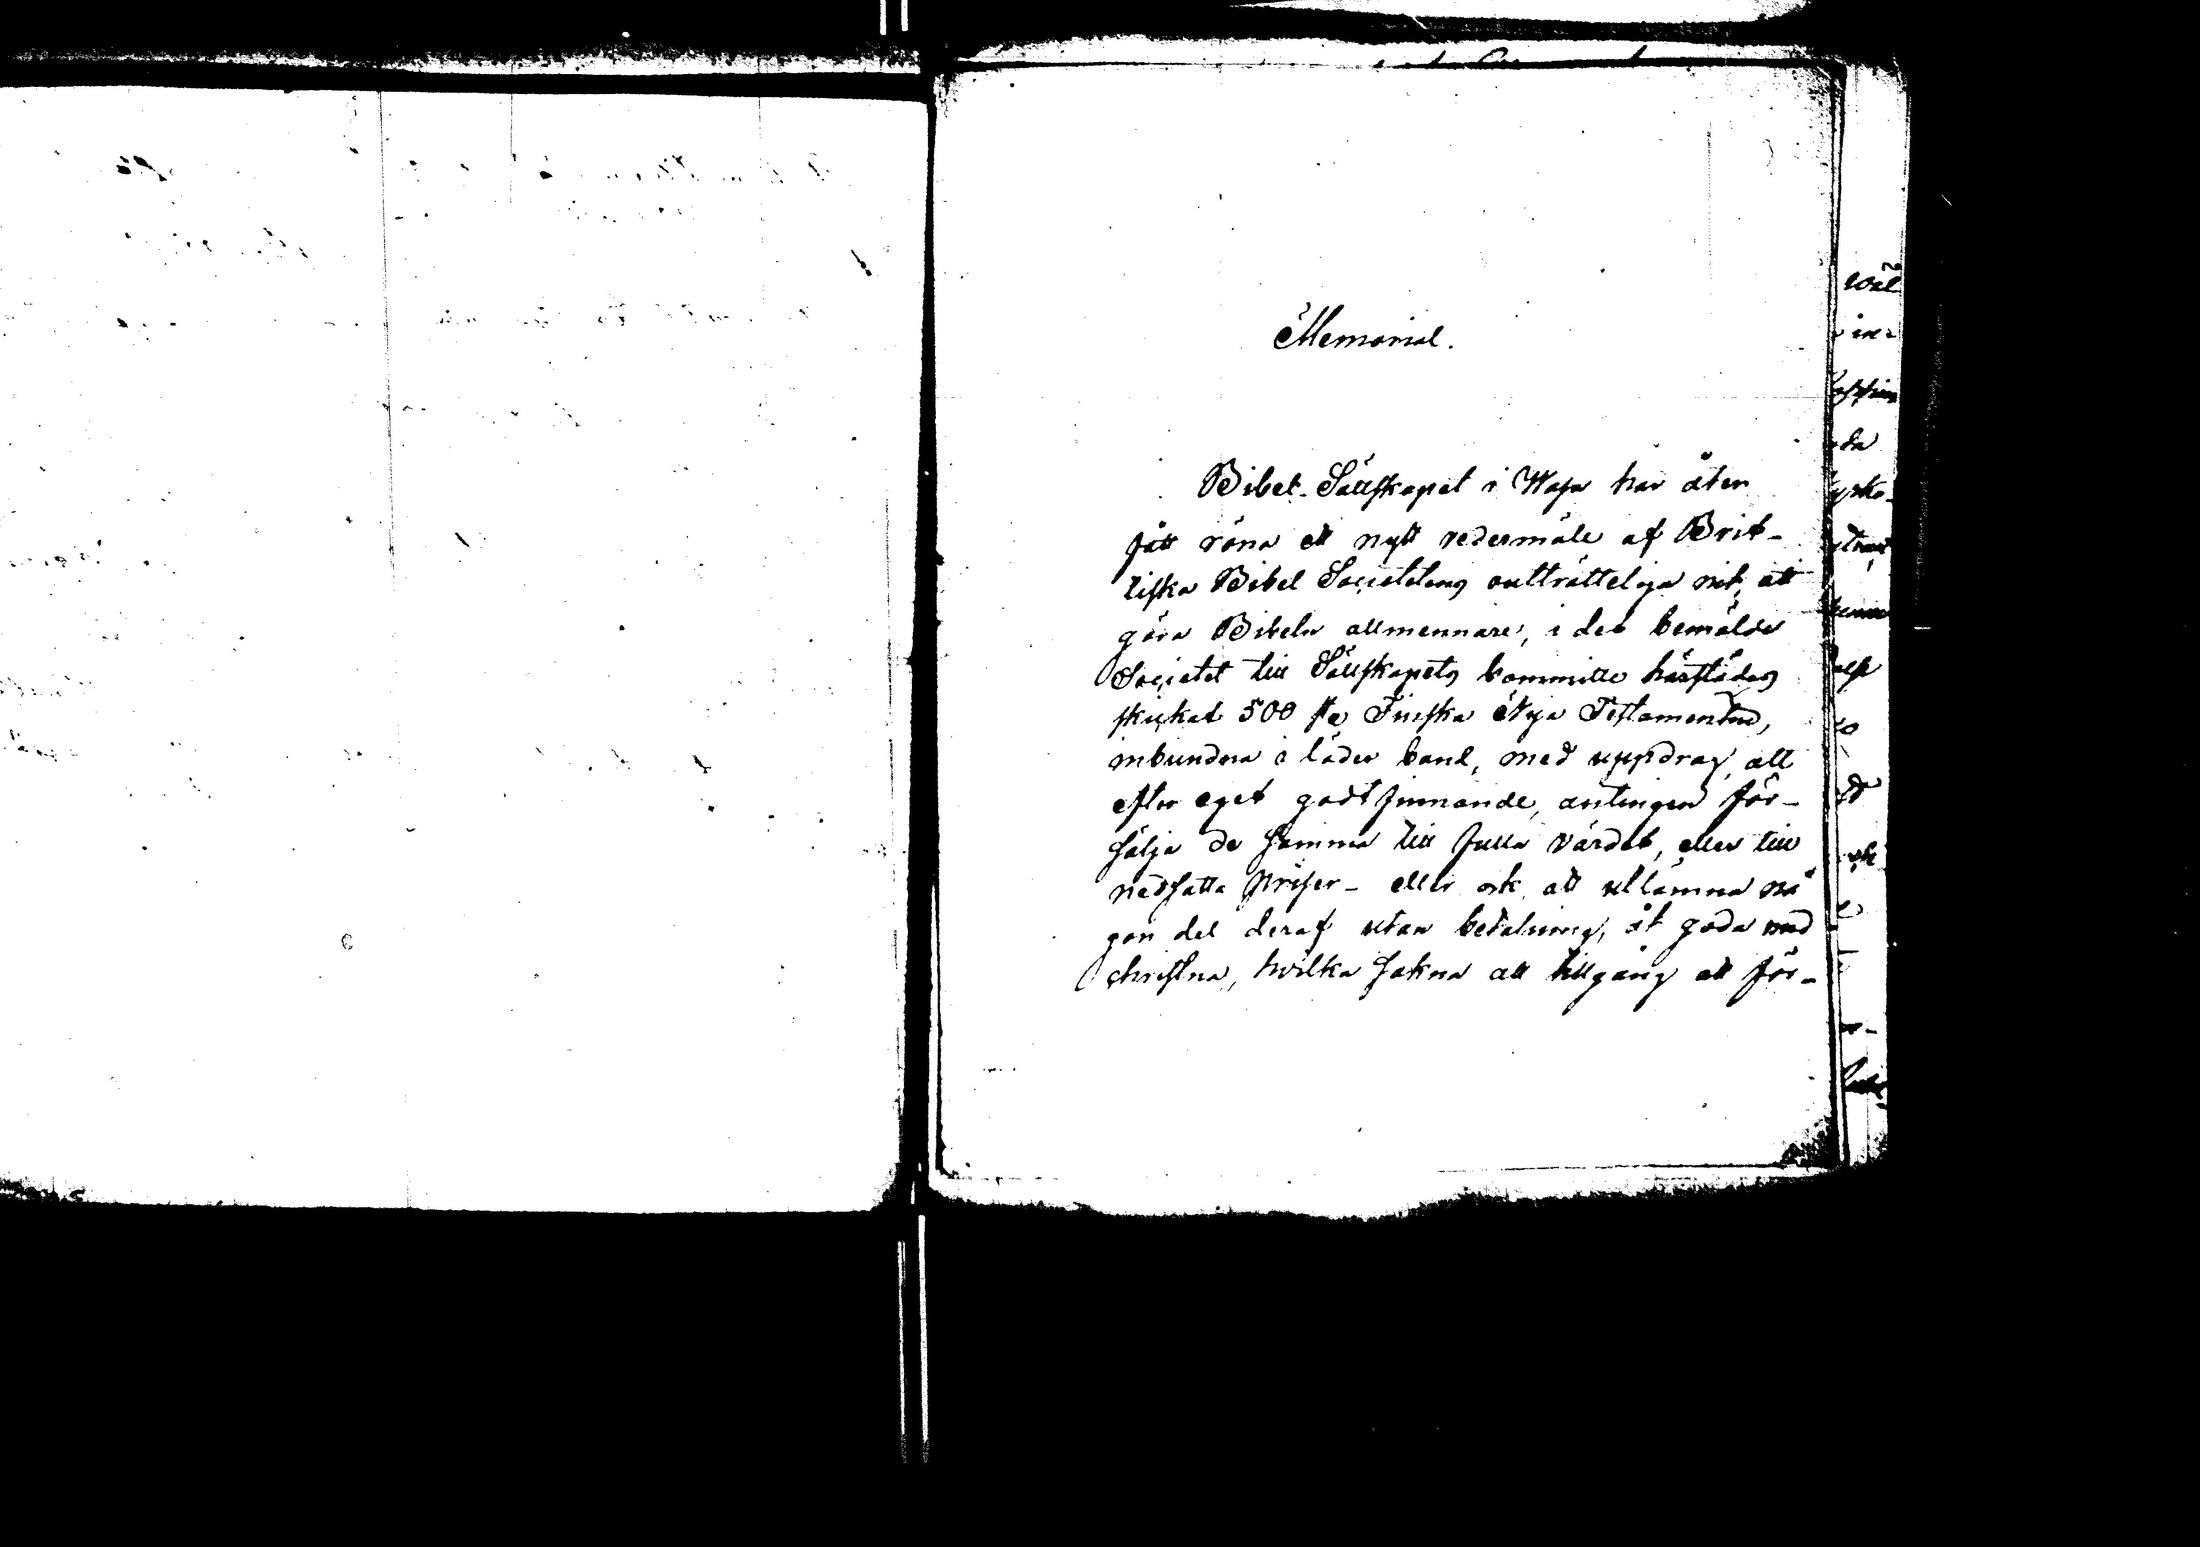 Memorial.
Bibel-Sällskapet i Wasa har åter
fått röna ett nytt vedermäle af Brit-
tiska Bibel Societetens outtrötteliga nit, att
göra Bibeln allmennare, i det bemälde
Societet till Sällskapets Committe härstädes
skickat 500 st Finska Nya Testamenter,
inbundna i läder band, med uppdrag, att
efter eget godtfinnande, antingen för-
sälja de samma till fulla värdet, eller till
nedsatta priser - eller ock att utlämna nå
gon del deraf utan betalning, åt goda med
christna, hvilka sakna all tillgång att för-